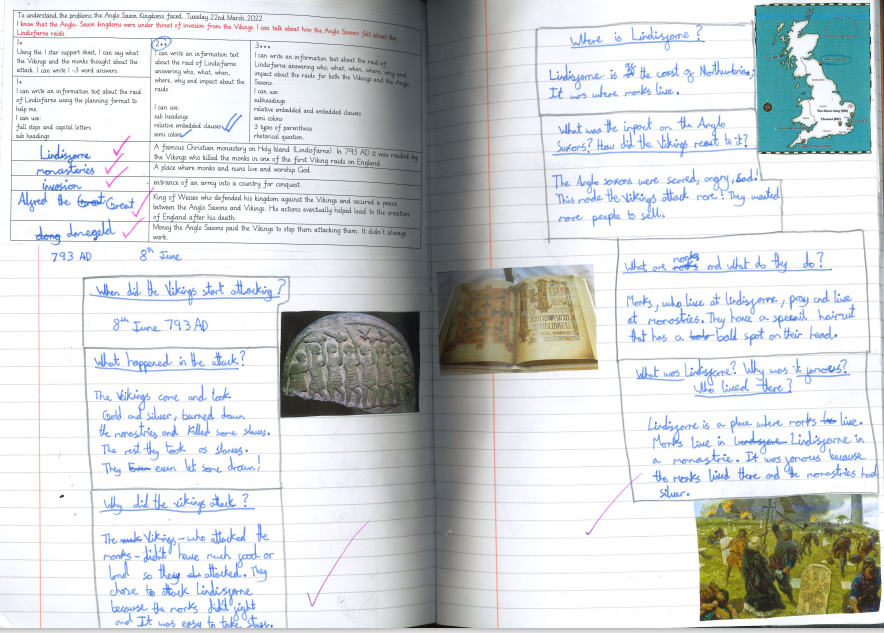 To understand the problems the Anglo Saxon Kingdoms faced. Tuesday 22nd March 2022
I know that the Anglo- Saxon kingdoms were under threat of invasion from the Vikings. I can talk about how the Anglo Saxons felt about the
Lindisfarne raids.
1*
Using the 1 star support sheet, I can say what
the Vikings and the monks thought about the
attack. I can write 1 -3 word answers.
1*
I can write an information text about the raid
of Lindisfarne using the planning format to
help me.
I can use:
full stops and capital letters
sub headings
2**
I can write an information text
about the raid of Lindisfarne
answering who, what, when,
where, why and impact about the
raids.
I can use:
sub headings
relative embedded clauses
semi colons
3***
I can write an information text about the raid of
Lindisfarne answering who, what, when, where, why and
impact about the raids for both the Vikings and the Anglo
Saxons.
I can use:
subheadings
relative embedded and embedded clauses
semi colons
3 types of parenthesis
rhetorical question.
Lindisfarne
A famous Christian monastery on Holy Island (Lindisfarne). In 793 AD it was raided by
the Vikings who killed the monks in one of the first Viking raids on England.
monasteries
A place where monks and nuns live and worship God.
invasion
entrance of an army into a country for conquest.
Alfred the Great Great
King of Wessex who defended his kingdom against the Vikings and secured a peace
between the Anglo Saxons and Vikings. His actions eventually helped lead to the creation
of England after his death.
dang danegeld
Money the Anglo Saxons paid the Vikings to stop them attacking them. It didn't always
work.
793 AD 8th June
When did the Vikings start attacking?
8th June 793 AD
What happened in the attack?
The Vikings came and took
Gold and silver, burned down
the monastries and killed some slaves.
The rest they took as slaves.
They even let some drown!
Why did the vikings attack?
The Vikings - who attacked the
monks - didn't have much good or
land so they attacked. They
chose to attack Lindisfarne
because the monks didn't fight
and It was easy to take stuff.
Where is Lindisfarne?
Lindisfarne is the coast of Northumbria;
It was where monks live.
What was the inpact on the Anglo
Saxons? How did the Vikings react to it?
The Anglo saxons were scared, angry, sad!
This made the Vikings attack more! They wanted
more people to sell.
What are monks and what do they do?
Monks, who live at Lindisfarne, pray and live
at monastries. They have a speail haircut
that has a bald spot on their head.
What was Lindisfarne? Why was it famous?
Who lived there?
Lindisfarne is a place where monks live.
Monks live in Lindisfarne in
a monastrie. It was famous because
the monks lived there and the monastries had
silver.